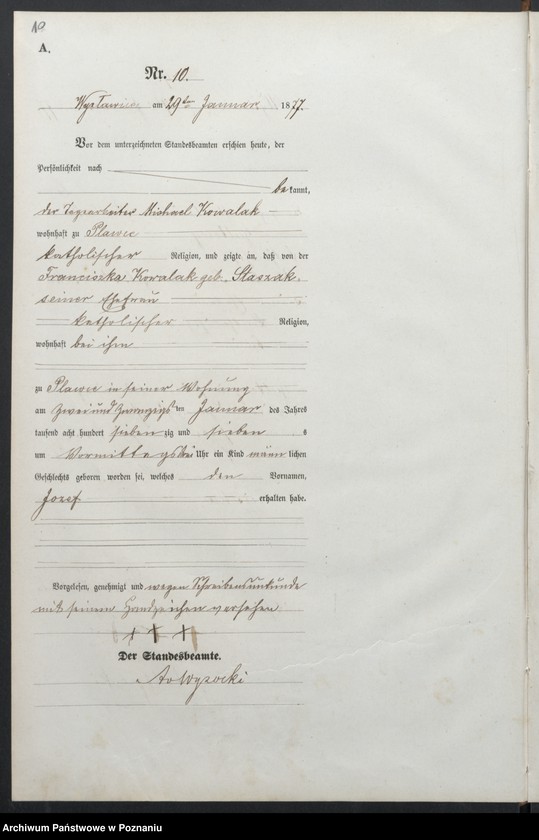 10
A.
Nr. 10.
am 29ten Januar 1877.
Vor dem unterzeichneten Standesbeamten erschien heute, der
Persönlichkeit nach
bekannt,
der Tagearbeiter Michael Kowalak
wohnhaft zu Plawce
katholischer Religion, und zeigte an, daß von der
Franciszka Kowalak geb. Staszak,
seiner Ehefrau
katholischer Religion,
wohnhaft bei ihm
zu Plawce in seiner Wohnung
am zwei und zwanzigsten Januar des Jahres
tausend acht hundert siebenzig und sieben
um Vormittags Uhr ein Kind männlichen
Geschlechts geboren worden sei, welches den Vornamen,
Jozef erhalten habe.
Vorgelesen, genehmigt und wegen Schreibensunkunde
mit seinem Handzeichen versehen
+ + +
Der Standesbeamte.
Archiwum Państwowe w Poznaniu